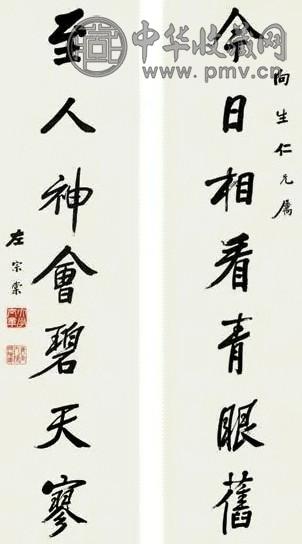 中华收藏网
www.pmv.cn
向生仁兄屬
今日相看青眼舊
至人神會碧天寥
左宗棠